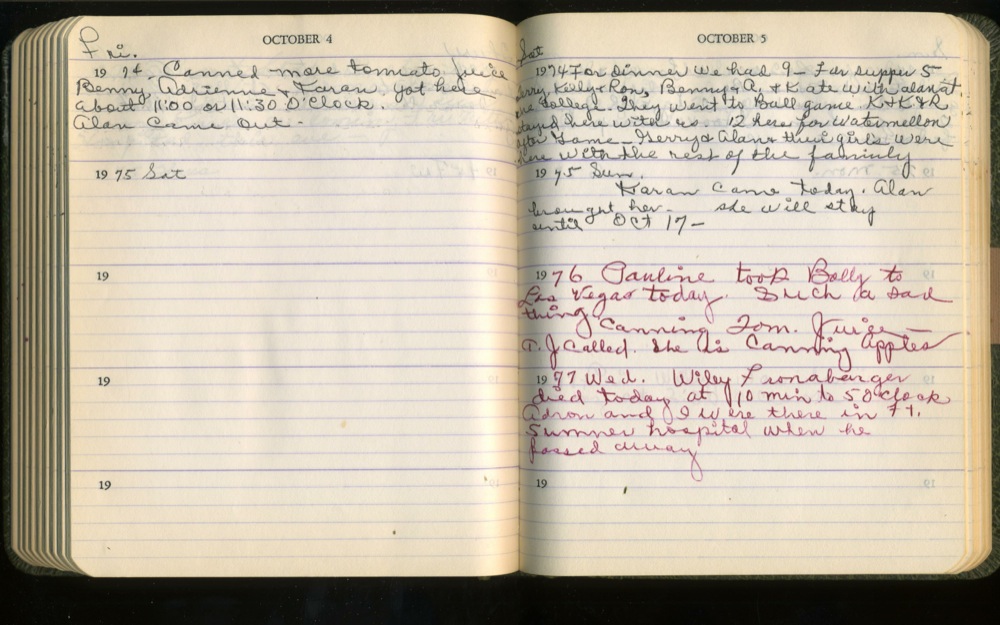 OCTOBER 4
Fri.
1974. Canned more tomato juice
Benny, Adrienne & Karan got here
about 11:00 or 11:30 O'Clock.
Alan Came Out -
1975 Sat
19
19
19
OCTOBER 5
Sat
1974 For dinner we had 9 - For supper 5
Kelly & Ron, Benny & A. & Kate with alan at
College. They went to Ball game K & K & R
stayed here with us 12 here for watermellon
after Game - Gerry & Alan & their girls were
here with the rest of the faminly
1975 Sun.
Karan came today. Alan
brought her - she will stay
until Oct 17 -
1976 Pauline took Bolly to
Las Vegas today. Such a sad
thing Canning Tom. Juice -
T.J called. She is Canning Apples
1977 Wed. Wiley Fronabarger
died today at 10 min to 5 O'clock
Adron and I were there in Ft.
Sumner hospital when he
passed away
19